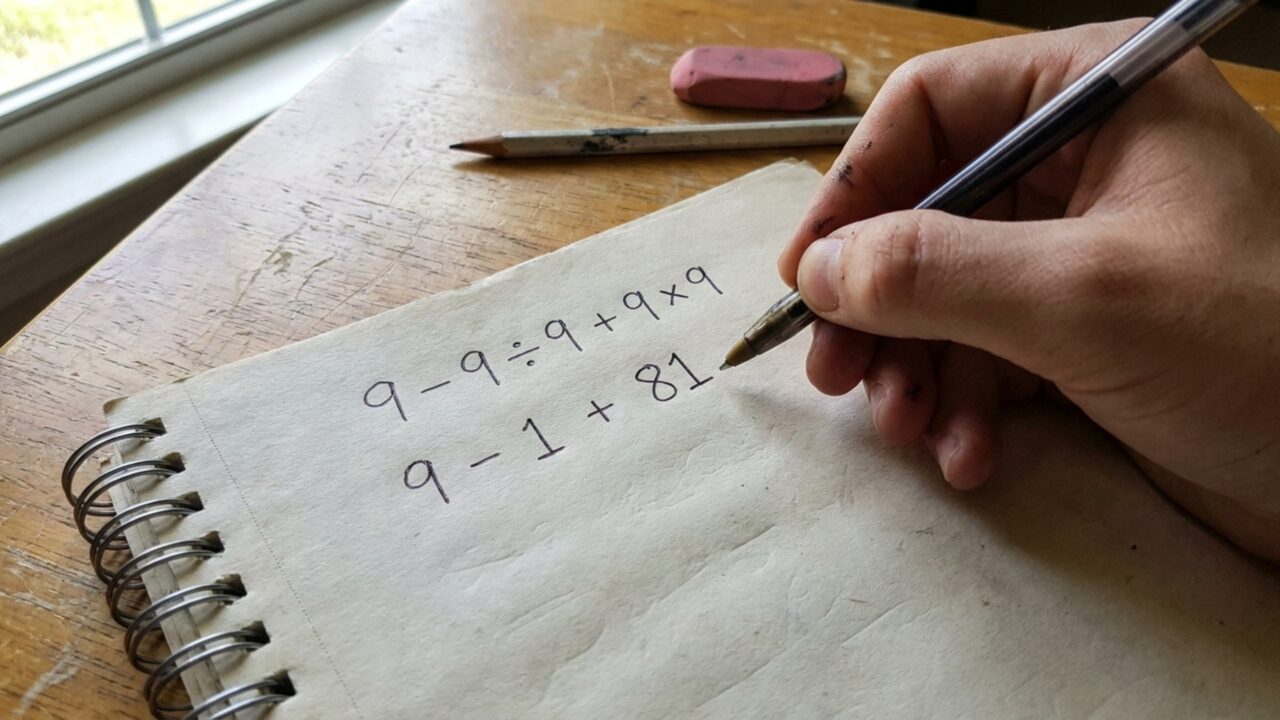 9 - 9 ÷ 9 + 9 × 9
9 - 1 + 81